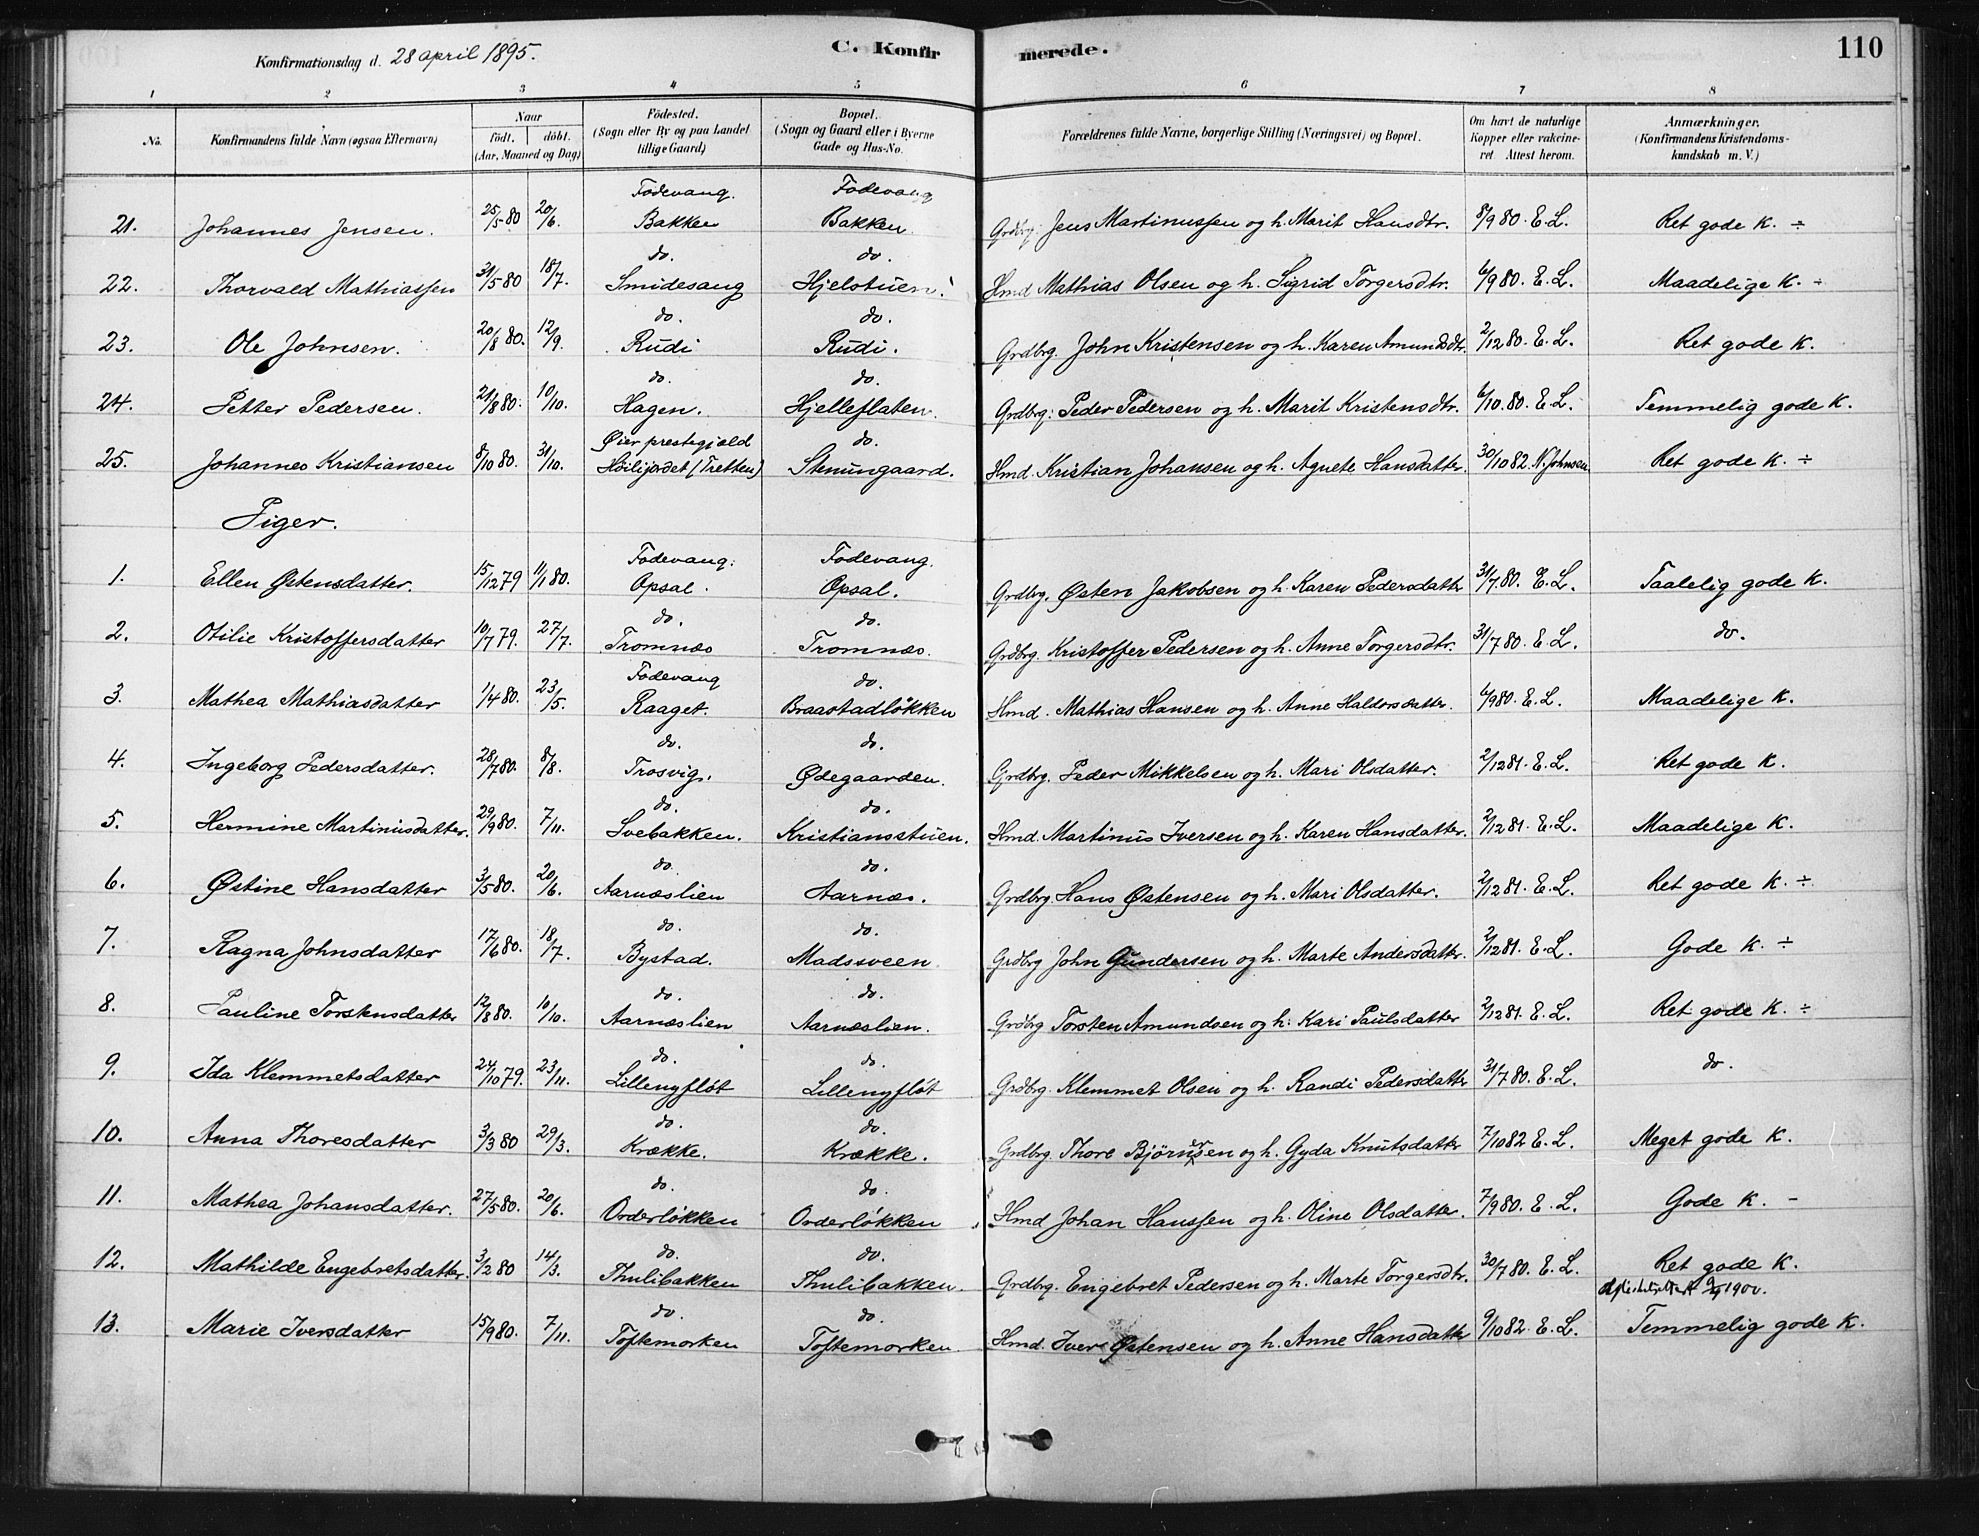 Konfirmationsdag d. 28 april 1895.
C. Konfirmerede.
110
1 2 3 4 5 6 7 8
No. Konfirmandens fulde Navn (ogsaa Efternavn) Naar født. døbt. (Aar, Maaned og Dag) Fødested. (Sogn eller By og paa Landet tillige Gaard) Bopæl. (Sogn og Gaard eller i Byerne Gade og Hus-No. Forældrenes fulde Navne, borgerlige Stilling (Næringsvei) og Bopæl. Om havt de naturlige Kopper eller vakcineret. Attest herom. Anmærkninger, (Konfirmandens Kristendomskundskab m. V.)
Fodevang. Fodevang
21. Johannes Jensen. 25/5 80 20/6. Bakken Bakken. Grdbrg. Jens Martinussen og h. Marit Hansdtr. 8/9 80. E. L. Ret gode K. ÷
do. do.
22. Thorvald Mathiassen 31/5 80 18/7. Smidesang Hjelstuen. Hmd Mathias Olsen og h. Sigrid Torgersdtr. 6/9 80. E. L. Maadelige K. ÷
do. do.
23. Ole Johnsen. 20/8 80. 12/9. Rudi Rudi. Grdbrg. John Kristensen og h. Karen Amundsdtr. 2/12 80. E. L. Ret gode K.
do. do.
24. Petter Pedersen. 21/8 80. 10/10. Hagen. Hjelleflaten. Grdbrg. Peder Pedersen og h. Marit Kristensdtr. 6/10. 80. E. L. Temmelig gode K.
Øier prestegjæld do.
25. Johannes Kristiansen 8/10 80. 31/10. Høilijordet (Tretten) Stenumgaard. Hmd. Kristian Johansen og h. Agnete Hansdatter. 30/10 82. N. Johnsen Ret gode K. ÷
Piger.
Fodevang. Fodevang.
1. Ellen Østensdatter. 15/12 79 11/1 80. Opsal. Opsal. Grdbrg. Østen Jakobsen og h. Karen Pedersdatter 31/7. 80. E. L. Taalelig gode K.
do. do.
2. Otilie Kristoffersdatter 10/7 79. 27/7. Tromnæs Tromnæs. Grdbrg. Kristoffer Pedersen og h. Anne Torgersdtr. 31/7 80. E. L. do.
Fodevang do.
3. Mathea Mathiasdatter 1/4 80. 23/5. Raaget. Braastadløkken Hmd. Mathias Hansen og h. Anne Haldorsdatter. 6/9 80. E. L. Maadelige K.
do. do.
4. Ingeborg Pedersdatter. 28/7 80. 8/8. Trosvig. Ødegaarden. Grdbrg. Peder Mikkelsen og h. Mari Olsdatter. 2/12 81. E. L. Ret gode K.
do. do.
5. Hermine Martinusdatter. 29/9 80. 7/11. Svebakken. Kristiansstuen. Hmd. Martinus Iversen og h. Karen Hansdatter. 2/12 81. E. L. Maadelige K.
do. do.
6. Østine Hansdatter 3/5 80. 20/6. Aarnæslien Aarnæs. Grdbrg. Hans Østensen og h. Mari Olsdatter. 2/12 81. E. L. Ret gode K. ÷
do. do.
7. Ragna Johnsdatter 17/6 80. 18/7. Bystad. Madssveen Grdbrg John Gundersen og h. Marte Andersdatter. 2/12 81. E. L. Gode K. ÷
do. do.
8. Pauline Torstensdatter 12/8 80. 10/10. Aarnæslien Aarnæslien. Grdbrg Torsten Amundsen og h. Kari Paulsdatter 2/12 81. E. L. Ret gode K. ÷
do. do.
9. Ida Klemmetsdatter 24/10 79. 23/11. Lillenyfløt Lillenyfløt Grdbrg. Klemmet Olsen og h. Randi Pedersdatter 31/7 80. E. L. do.
do. do.
10. Anna Thoresdatter 3/3 80 29/3. Krække. Krække. Grdbrg. Thore Bjørnersen og h. Gyda Knutsdatter 7/10 82 E. L. Meget gode K.
do. do.
11. Mathea Johansdatter. 27/5 80. 20/6. Orderløkken Orderløkken Hmd Johan Hanssen og h. Oline Olsdatter. 7/9 80. E. L. Gode K. -
do. do.
12. Mathilde Engebretsdatter. 3/2 80 14/3. Thulibakken Thulibakken. Grdbrg. Engebret Pedersen og h. Marte Torgersdtr. 30/7 80. E. L. Ret gode K.
1900.
do. do.
13. Marie Iversdatter 15/9 80. 7/11. Toftemorken Toftemorken. Hmd. Iver Østensen og h. Anne Hansdatter 9/10 82. E. L. Temmelig gode K.